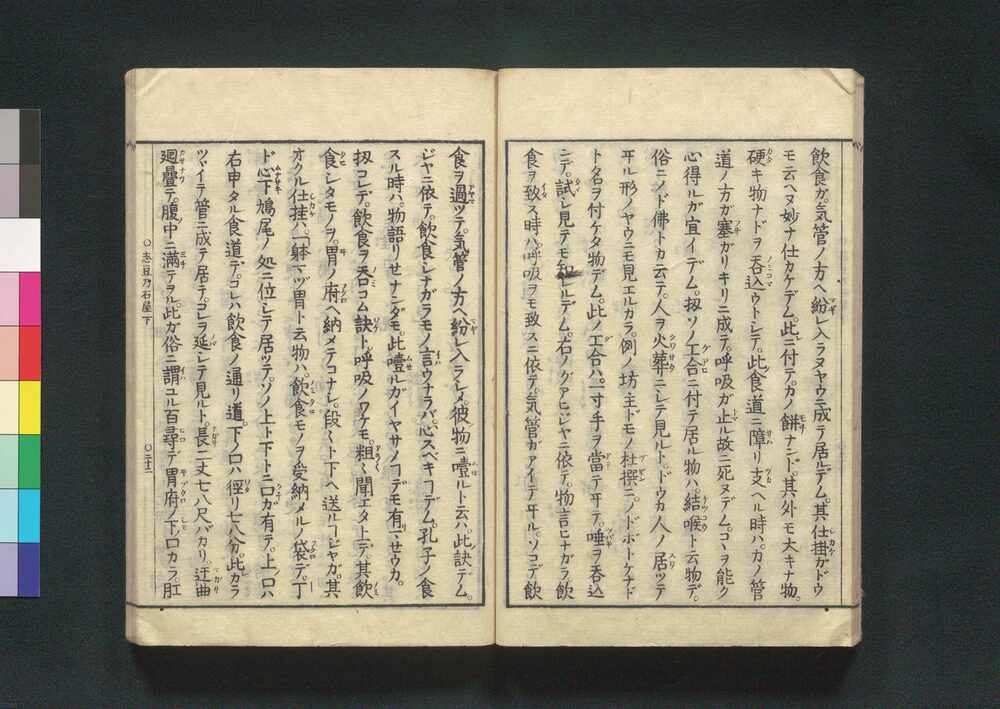 飲食ガ。気管ノ方ヘ紛レ入ラヌヤウニ成テ居ルデム。其仕掛ガドウ
モ云ヘヌ妙ナ仕カケデム。此ニ付テ。カノ餅ナンド。其外モ大キナ物。
硬キ物ナドヲ呑込ウトシテ。此食道ニ障リ支ヘル時ハ。カノ管
道ノ方ガ塞ガリキリニ成テ。呼吸ガ止ル故ニ死ヌデム。コヽヲ能ク
心得ルガ宜イデム。扨ソノ工合ニ付テ居ル物ハ。結喉ト云物デ。
俗ニノド佛トカ云テ。人ヲ火葬ニシテ見ルト。ドウカ人ノ居ツテ
ヰル形ノヤウニモ見エルカラ。例ノ坊主ドモノ杜撰ニ。ノドボトケナド
ト名ヲ付ケタ物デム。此ノ工合ハ。一寸手ヲ當テヰテ。唾ヲ呑込
ンデ。試シ見テモ知レルデム。右ノグアヒジヤニ依テ。物言ヒナガラ飲
食ヲ致ス時ハ。呼吸ヲモ致スニ依テ。気管ガアイテヰル。ソコデ飲
食ヲ過ツテ。気管ノ方ヘ紛レ入ラシメ。彼物ニ噎ルト云ハ。此訣デム。
ジヤニ依テ。飲食シナガラモノ言ウナラバ。心スベキヿデム。孔子ノ食
スル時ハ。物語リセナンダモ。此噎ルガイヤサノヿデモ有ヽセウカ。
扨コレデ。飲食ヲ呑コム訣ト。呼吸ノワケモ。粗〻聞エタトデ。其飲
食シタモノヲ。胃ノ府ヘ納メテコナシ。段〻ト下ヘ送ルヿジヤガ。其
オクル仕掛ハ。一躰マヅ胃ト云物ハ。飲食モノヲ受納メルノ袋デ。丁
ド心下鳩尾ノ処ニ位シテ居ツテ。ソノ上ト下トニ口ガ有テ。上ノ口ハ
右申タル食道デ。コレハ飲食ノ通リ道。下ノ口ハ徑リ七八分。此カラ
ツヾイテ管ニ成テ居テ。コレヲ延シテ見ルト。長二丈七八尺バカリ。迂曲
廻疊テ。腹中ニ滿テヲル。此ガ俗ニ謂ユル百尋デ。胃府ノ下口カラ。肛
○志豆乃石屋下
○二十二